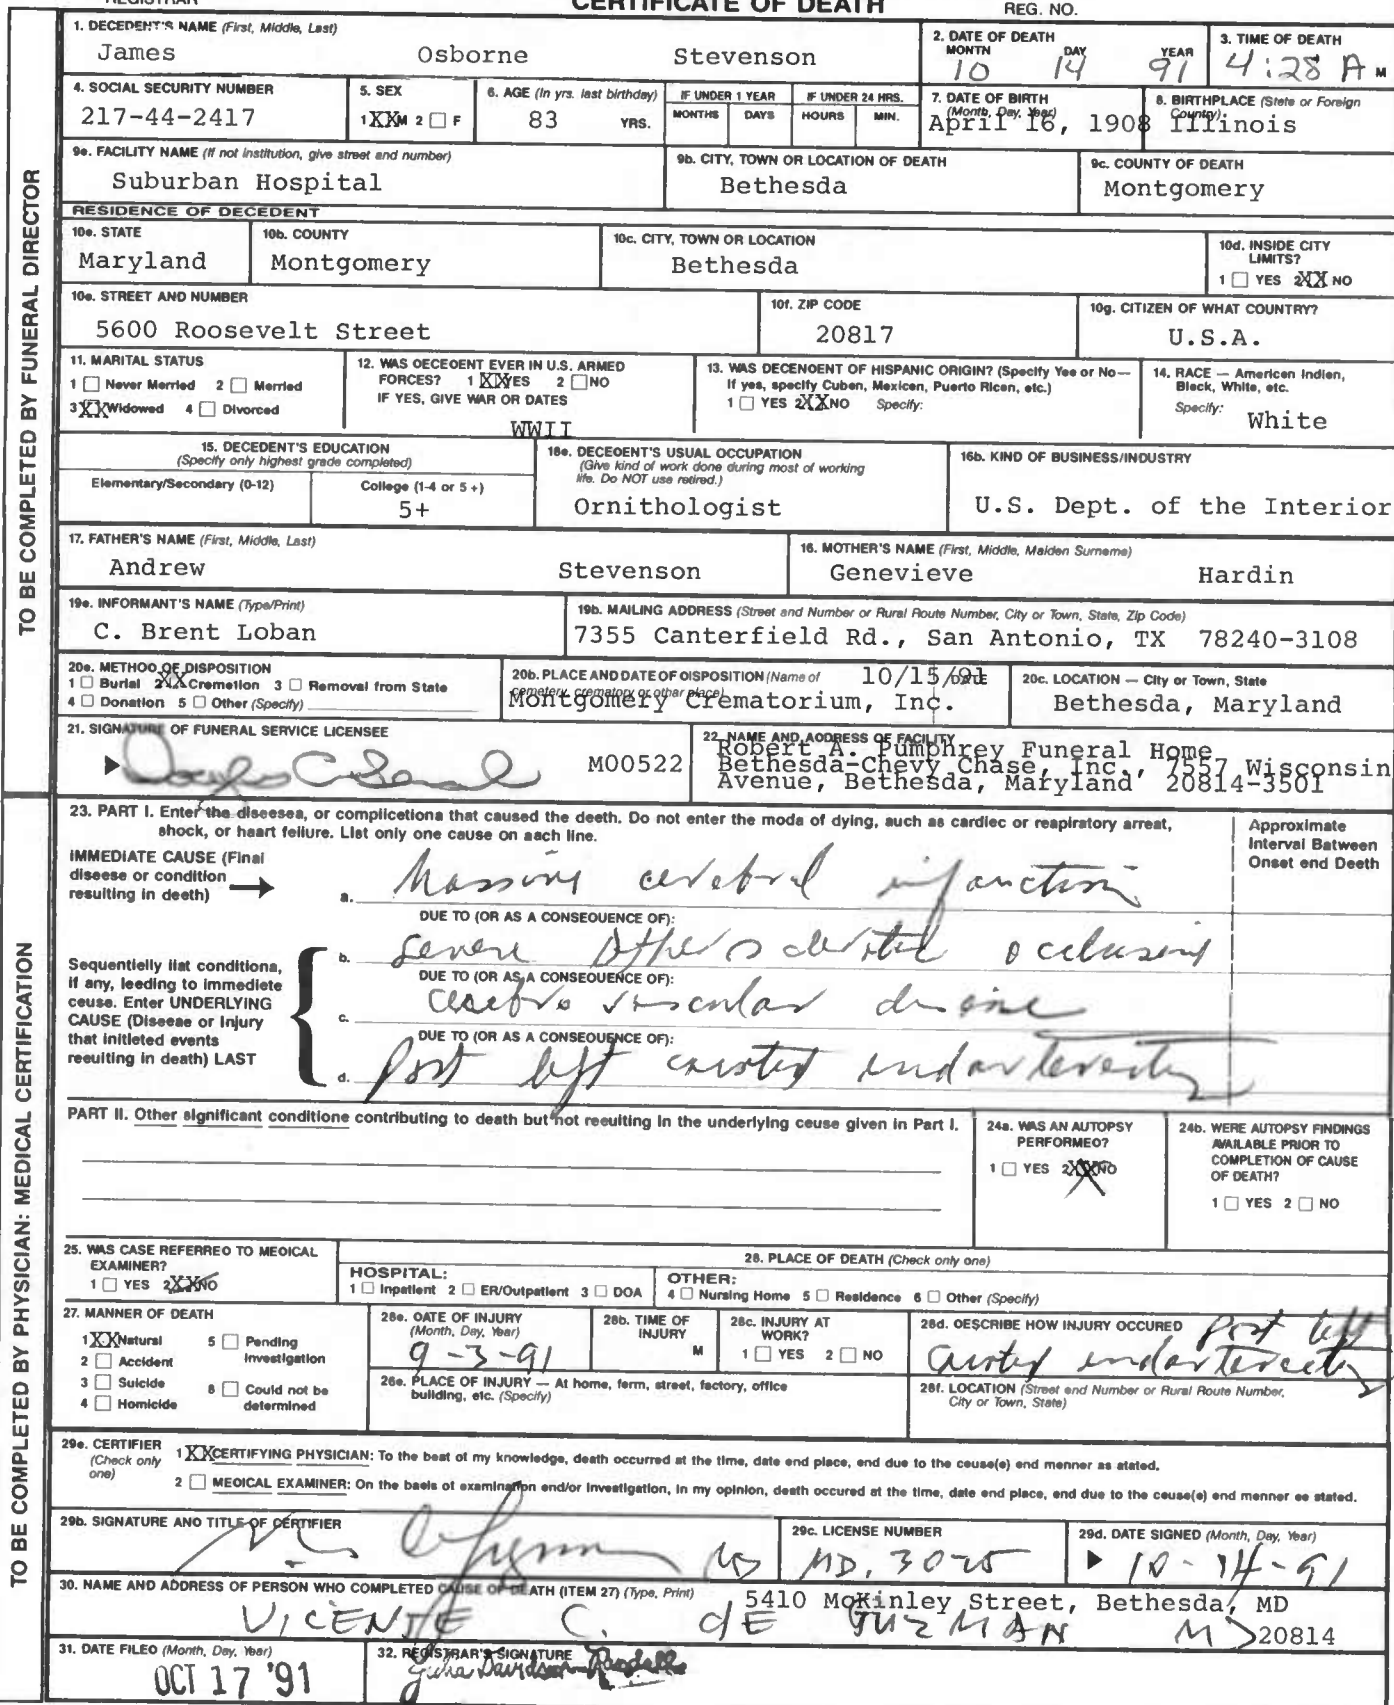 REGISTRAR CERTIFICATE OF DEATH REG. NO.
1. DECEDENT'S NAME (First, Middle, Last)
James Osborne Stevenson
2. DATE OF DEATH
MONTH DAY YEAR
10 14 91
3. TIME OF DEATH
4:28 A M
4. SOCIAL SECURITY NUMBER
217-44-2417
5. SEX
1 XX M 2 ☐ F
6. AGE (In yrs. last birthday)
83 YRS.
IF UNDER 1 YEAR
MONTHS DAYS
IF UNDER 24 HRS.
HOURS MIN.
7. DATE OF BIRTH
(Month, Day, Year)
April 16, 1908
8. BIRTHPLACE (State or Foreign
Country)
Illinois
9a. FACILITY NAME (If not institution, give street and number)
Suburban Hospital
9b. CITY, TOWN OR LOCATION OF DEATH
Bethesda
9c. COUNTY OF DEATH
Montgomery
RESIDENCE OF DECEDENT
10a. STATE
Maryland
10b. COUNTY
Montgomery
10c. CITY, TOWN OR LOCATION
Bethesda
10d. INSIDE CITY
LIMITS?
1 ☐ YES 2 XX NO
10e. STREET AND NUMBER
5600 Roosevelt Street
10f. ZIP CODE
20817
10g. CITIZEN OF WHAT COUNTRY?
U.S.A.
11. MARITAL STATUS
1 ☐ Never Married 2 ☐ Married
3 XX Widowed 4 ☐ Divorced
12. WAS DECEDENT EVER IN U.S. ARMED
FORCES? 1 XX YES 2 ☐ NO
IF YES, GIVE WAR OR DATES
WWII
13. WAS DECENDENT OF HISPANIC ORIGIN? (Specify Yes or No—
If yes, specify Cuban, Mexican, Puerto Rican, etc.)
1 ☐ YES 2 XX NO Specify:
14. RACE — American Indian,
Black, White, etc.
Specify: White
15. DECEDENT'S EDUCATION
(Specify only highest grade completed)
Elementary/Secondary (0-12) College (1-4 or 5+)
5+
16a. DECEDENT'S USUAL OCCUPATION
(Give kind of work done during most of working
life. Do NOT use retired.)
Ornithologist
16b. KIND OF BUSINESS/INDUSTRY
U.S. Dept. of the Interior
17. FATHER'S NAME (First, Middle, Last)
Andrew Stevenson
18. MOTHER'S NAME (First, Middle, Maiden Surname)
Genevieve Hardin
19a. INFORMANT'S NAME (Type/Print)
C. Brent Loban
19b. MAILING ADDRESS (Street and Number or Rural Route Number, City or Town, State, Zip Code)
7355 Canterfield Rd., San Antonio, TX 78240-3108
20a. METHOD OF DISPOSITION
1 ☐ Burial 2 XX Cremation 3 ☐ Removal from State
4 ☐ Donation 5 ☐ Other (Specify)
20b. PLACE AND DATE OF DISPOSITION (Name of
cemetery, crematory or other place)
10/15/91
Montgomery Crematorium, Inc.
20c. LOCATION — City or Town, State
Bethesda, Maryland
21. SIGNATURE OF FUNERAL SERVICE LICENSEE
M00522
22. NAME AND ADDRESS OF FACILITY
Robert A. Pumphrey Funeral Home
Bethesda-Chevy Chase, Inc., 7557 Wisconsin
Avenue, Bethesda, Maryland 20814-3501
TO BE COMPLETED BY FUNERAL DIRECTOR
23. PART I. Enter the diseases, or complications that caused the death. Do not enter the mode of dying, such as cardiac or respiratory arrest,
shock, or heart failure. List only one cause on each line.
Approximate
Interval Between
Onset and Death
IMMEDIATE CAUSE (Final
disease or condition
resulting in death) →
a. Massive cerebral infarction
DUE TO (OR AS A CONSEQUENCE OF):
Sequentially list conditions,
if any, leading to immediate
cause. Enter UNDERLYING
CAUSE (Disease or Injury
that initiated events
resulting in death) LAST
b. severe atherosclerotic occlusive
DUE TO (OR AS A CONSEQUENCE OF):
c. cerebro vascular disease
DUE TO (OR AS A CONSEQUENCE OF):
d. post left carotid endarterectomy
PART II. Other significant conditions contributing to death but not resulting in the underlying cause given in Part I.
24a. WAS AN AUTOPSY
PERFORMED?
1 ☐ YES 2 XX NO
24b. WERE AUTOPSY FINDINGS
AVAILABLE PRIOR TO
COMPLETION OF CAUSE
OF DEATH?
1 ☐ YES 2 ☐ NO
25. WAS CASE REFERRED TO MEDICAL
EXAMINER?
1 ☐ YES 2 XX NO
26. PLACE OF DEATH (Check only one)
HOSPITAL:
1 ☐ Inpatient 2 ☐ ER/Outpatient 3 ☐ DOA
OTHER:
4 ☐ Nursing Home 5 ☐ Residence 6 ☐ Other (Specify)
27. MANNER OF DEATH
1 XX Natural 5 ☐ Pending
Investigation
2 ☐ Accident
3 ☐ Suicide 6 ☐ Could not be
determined
4 ☐ Homicide
28a. DATE OF INJURY
(Month, Day, Year)
9-3-91
28b. TIME OF
INJURY
M
28c. INJURY AT
WORK?
1 ☐ YES 2 ☐ NO
28d. DESCRIBE HOW INJURY OCCURED
post left
carotid endarterectomy
28e. PLACE OF INJURY — At home, farm, street, factory, office
building, etc. (Specify)
28f. LOCATION (Street and Number or Rural Route Number,
City or Town, State)
29a. CERTIFIER
(Check only
one)
1 XX CERTIFYING PHYSICIAN: To the best of my knowledge, death occurred at the time, date and place, and due to the cause(s) and manner as stated.
2 ☐ MEDICAL EXAMINER: On the basis of examination and/or investigation, in my opinion, death occured at the time, date and place, and due to the cause(s) and manner as stated.
29b. SIGNATURE AND TITLE OF CERTIFIER
MD
29c. LICENSE NUMBER
MD. 3025
29d. DATE SIGNED (Month, Day, Year)
10-14-91
30. NAME AND ADDRESS OF PERSON WHO COMPLETED CAUSE OF DEATH (ITEM 27) (Type, Print)
5410 McKinley Street, Bethesda, MD
VICENTE C. dE GUZMAN MD 20814
31. DATE FILED (Month, Day, Year)
OCT 17 '91
32. REGISTRAR'S SIGNATURE
Julia Davidson-Randall
TO BE COMPLETED BY PHYSICIAN: MEDICAL CERTIFICATION